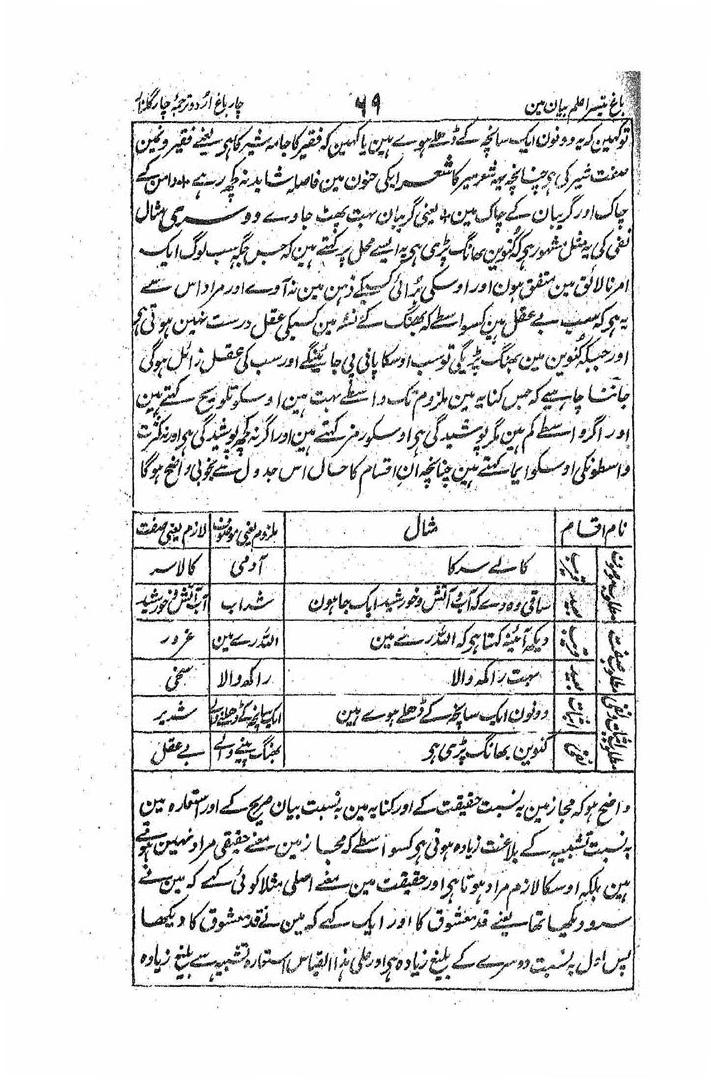 باغ تیسرا علم بیان مین ٦٩ چار باغ اردو ترجمۂ چار گلزار
تو کہین کہ یہ دونون ایک سانچہ کے ڈھلے ہوے ہین یا کہین کہ فقیر کا جامہ شیر کا ہی یعنے فقیر ونمین
صفت شیر کی ہی چنانچہ یہ شعر میر کا شعر ابکی جنون مین فاصلہ شاید نہ کچھ رہے + دامن کے
چاک اور گریبان کے چاک مین + یعنی گریبان بہت پھٹ جاوے دوسری مثال
نفی کی یہ مثل مشہور ہی کہ کنوین بھانگ پڑی ہی یہ ایسے محل پر کہتے ہین کہ جس جگہ سب لوگ ایک
امر نالائق مین متفق ہون اور اوسکی برائی کسیکے ذہن مین نہ آوے اور مراد اس سے
یہ ہی کہ سب بے عقل ہین کسواسطے کہ بھنگ کے نشہ مین کسیکی عقل درست نہین ہوتی ہی
اور جبکہ کنوین مین بھنگ پڑیگی تو سب اوسکا پانی پی جائینگے اور سب کی عقل زائل ہوگی
جاننا چاہیے کہ جس کنایہ مین ملزوم تک واسطے بہت ہین اوسکو تلویح کہتے ہین
اور اگر واسطے کم ہین مگر پوشیدگی ہی اوسکو رمز کہتے ہین اور اگر نہ کچھ پوشیدگی ہی اور نہ کثرت
واسطونکی اوسکو ایما کہتے ہین چنانچہ ان اقسام کا حال اس جدول سے بخوبی واضح ہوگا
نام اقسام مثال ملزوم یعنی موصوف لازم یعنی صفت
مطلوب موصوف قریب کالے سر کا آدمی کالا سر
بعید ساقی وہ دے کہ آب و آتش و خورشید ایک جا ہون شراب آب آتش و خورشید
مطلوب صفت قریب دیکھ آئینہ کہتا ہی کہ اللہ رے مین اللہ رے مین غرور
بعید بہت راکھ والا راکھ والا سخی
مطلوب اثبات و نفی اثبات دونون ایک سانچہ کے ڈھلے ہوے ہین ایک سانچہ کے ڈھلے شریر
نفی کنوین بھانگ پڑی ہی بھنگ پینے والے بے عقل
واضح ہو کہ مجاز مین بہ نسبت حقیقت کے اور کنایہ مین بہ نسبت بیان صریح کے اور استعارہ مین
بہ نسبت تشبیہہ کے بلاغت زیادہ ہوتی ہی کسواسطے کہ مجاز مین معنے حقیقی مراد نہین ہوتے
ہین بلکہ اوسکا لازم مراد ہوتا ہی اور حقیقت مین معنے اصلی مثلا کوئی کہے کہ مین نے
سرو دیکھا تھا یعنے قد معشوق کا اور ایک کہے کہ مین نے قد معشوق کا دیکھا
پس اول بہ نسبت دوسرے کے بلیغ زیادہ ہی اور علی ہذا القیاس استعارہ تشبیہ سے بلیغ زیادہ